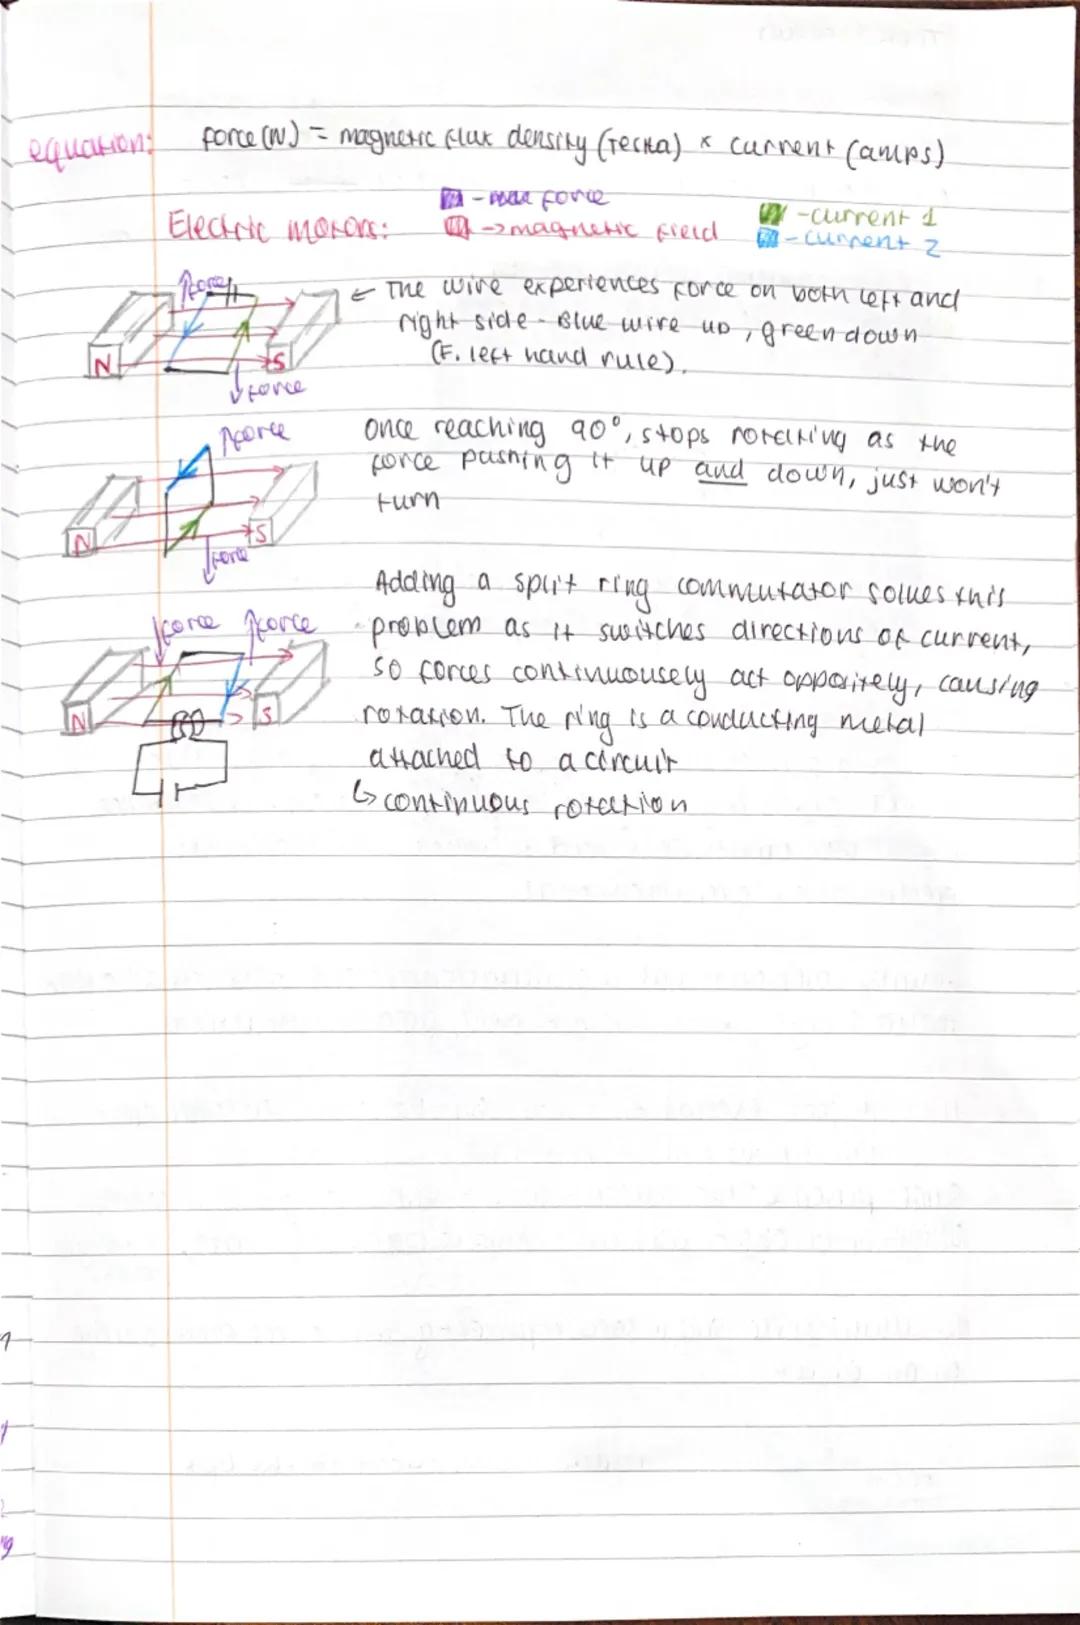 equation: force (N) = magnetic flux density (Tesla) × current (amps)
- force
Electric motors: → magnetic field
- current 1
- current 2
force
N
S
force
← The wire experiences force on both left and
right side - Blue wire up, green down
(F. left hand rule).
force
N
S
force
Once reaching 90°, stops rotating as the
force pushing it up and down, just won't
turn
force force
N
S
Adding a split ring commutator solves this
problem as it switches directions of current,
so forces continuousely act oppositely, causing
rotation. The ring is a conducting metal
attached to a circuit
↳ continuous rotation